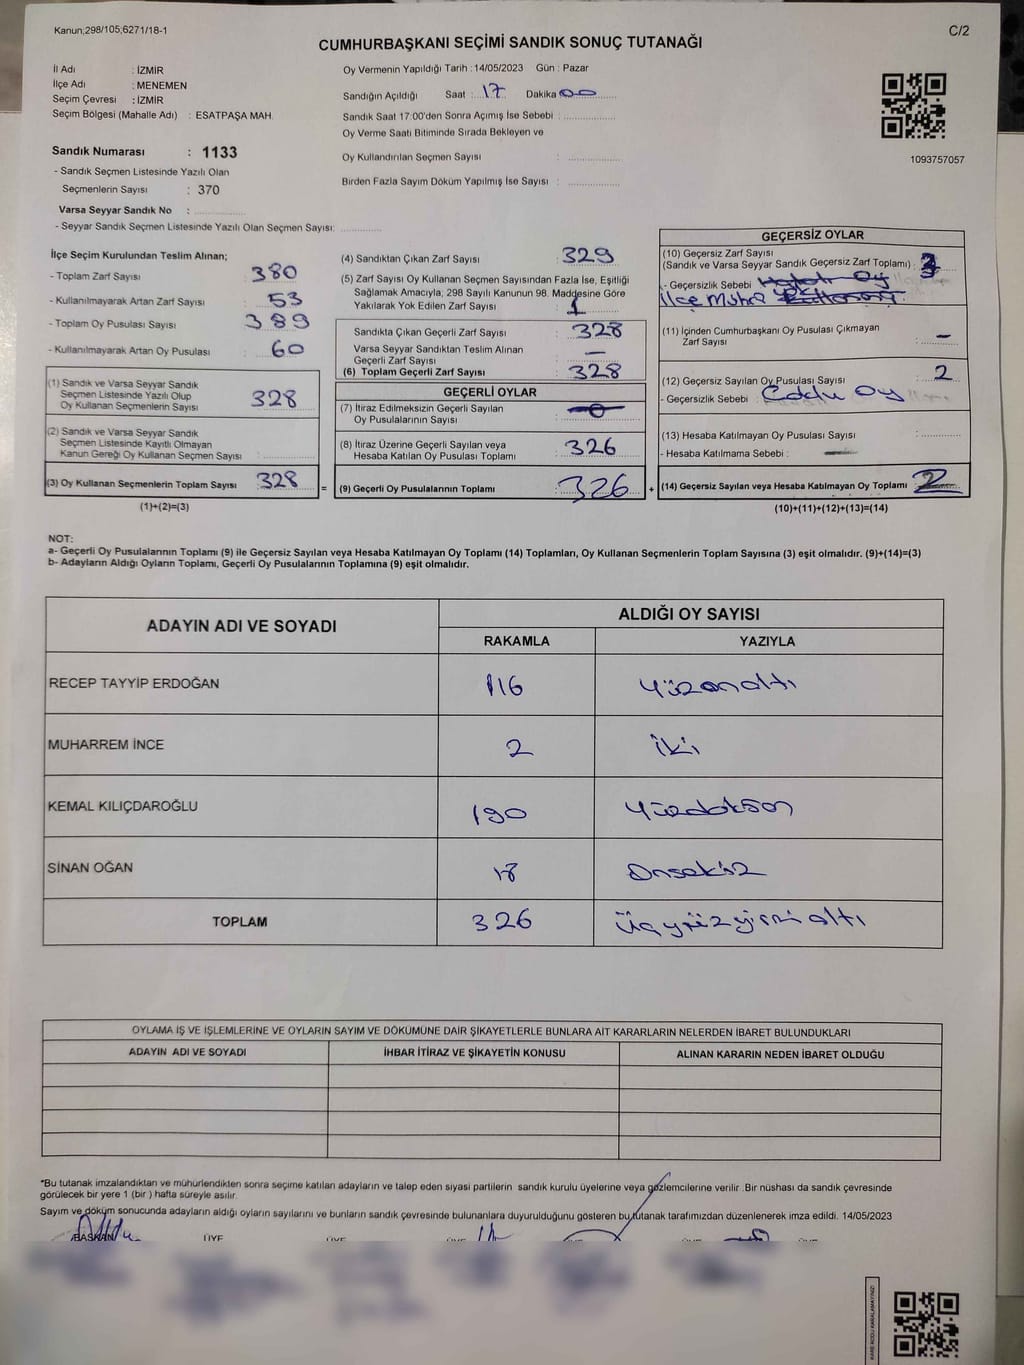 Kanun;298/105;6271/18-1
C/2
CUMHURBAŞKANI SEÇİMİ SANDIK SONUÇ TUTANAĞI
İl Adı : İZMİR
İlçe Adı : MENEMEN
Seçim Çevresi : İZMİR
Seçim Bölgesi (Mahalle Adı) : ESATPAŞA MAH.
Sandık Numarası : 1133
- Sandık Seçmen Listesinde Yazılı Olan
Seçmenlerin Sayısı : 370
Varsa Seyyar Sandık No :
- Seyyar Sandık Seçmen Listesinde Yazılı Olan Seçmen Sayısı:
Oy Vermenin Yapıldığı Tarih :14/05/2023 Gün : Pazar
Sandığın Açıldığı Saat : 17 Dakika 00
Sandık Saat 17:00'den Sonra Açımış İse Sebebi :
Oy Verme Saati Bitiminde Sırada Bekleyen ve
Oy Kullandırılan Seçmen Sayısı :
Birden Fazla Sayım Döküm Yapılmış İse Sayısı :
1093757057
İlçe Seçim Kurulundan Teslim Alınan;
- Toplam Zarf Sayısı : 380
- Kullanılmayarak Artan Zarf Sayısı : 53
- Toplam Oy Pusulası Sayısı : 389
- Kullanılmayarak Artan Oy Pusulası : 60
(1) Sandık ve Varsa Seyyar Sandık
Seçmen Listesinde Yazılı Olup
Oy Kullanan Seçmenlerin Sayısı : 328
(2) Sandık ve Varsa Seyyar Sandık
Seçmen Listesinde Kayıtlı Olmayan
Kanun Gereği Oy Kullanan Seçmen Sayısı :
(3) Oy Kullanan Seçmenlerin Toplam Sayısı : 328
(1)+(2)=(3)
=
(4) Sandıktan Çıkan Zarf Sayısı : 329
(5) Zarf Sayısı Oy Kullanan Seçmen Sayısından Fazla İse, Eşitliği
Sağlamak Amacıyla; 298 Sayılı Kanunun 98. Maddesine Göre
Yakılarak Yok Edilen Zarf Sayısı : 1
Sandıkta Çıkan Geçerli Zarf Sayısı : 328
Varsa Seyyar Sandıktan Teslim Alınan
Geçerli Zarf Sayısı : —
(6) Toplam Geçerli Zarf Sayısı : 328
GEÇERLİ OYLAR
(7) İtiraz Edilmeksizin Geçerli Sayılan
Oy Pusulalarının Sayısı : 0
(8) İtiraz Üzerine Geçerli Sayılan veya
Hesaba Katılan Oy Pusulası Toplamı : 326
(9) Geçerli Oy Pusulalarının Toplamı : 326
+
GEÇERSİZ OYLAR
(10) Geçersiz Zarf Sayısı
(Sandık ve Varsa Seyyar Sandık Geçersiz Zarf Toplamı) :
- Geçersizlik Sebebi :
(11) İçinden Cumhurbaşkanı Oy Pusulası Çıkmayan
Zarf Sayısı : —
(12) Geçersiz Sayılan Oy Pusulası Sayısı : 2
- Geçersizlik Sebebi : Oy
(13) Hesaba Katılmayan Oy Pusulası Sayısı :
- Hesaba Katılmama Sebebi : —
(14) Geçersiz Sayılan veya Hesaba Katılmayan Oy Toplamı : 2
(10)+(11)+(12)+(13)=(14)
NOT:
a- Geçerli Oy Pusulalarının Toplamı (9) ile Geçersiz Sayılan veya Hesaba Katılmayan Oy Toplamı (14) Toplamları, Oy Kullanan Seçmenlerin Toplam Sayısına (3) eşit olmalıdır. (9)+(14)=(3)
b- Adayların Aldığı Oyların Toplamı, Geçerli Oy Pusulalarının Toplamına (9) eşit olmalıdır.
ADAYIN ADI VE SOYADI
ALDIĞI OY SAYISI
RAKAMLA YAZIYLA
RECEP TAYYİP ERDOĞAN 116 Yüzonaltı
MUHARREM İNCE 2 iki
KEMAL KILIÇDAROĞLU 190 Yüzdokson
SİNAN OĞAN 18 Onsekiz
TOPLAM 326 Üçyüzyirmialtı
OYLAMA İŞ VE İŞLEMLERİNE VE OYLARIN SAYIM VE DÖKÜMÜNE DAİR ŞİKAYETLERLE BUNLARA AİT KARARLARIN NELERDEN İBARET BULUNDUKLARI
ADAYIN ADI VE SOYADI İHBAR İTİRAZ VE ŞİKAYETİN KONUSU ALINAN KARARIN NEDEN İBARET OLDUĞU
*Bu tutanak imzalandıktan ve mühürlendikten sonra seçime katılan adayların ve talep eden siyasi partilerin sandık kurulu üyelerine veya gözlemcilerine verilir .Bir nüshası da sandık çevresinde
görülecek bir yere 1 (bir ) hafta süreyle asılır.
Sayım ve döküm sonucunda adayların aldığı oyların sayılarını ve bunların sandık çevresinde bulunanlara duyurulduğunu gösteren bu tutanak tarafımızdan düzenlenerek imza edildi. 14/05/2023
BAŞKAN ÜYE
KARE KODU KARALAMAYINIZ!